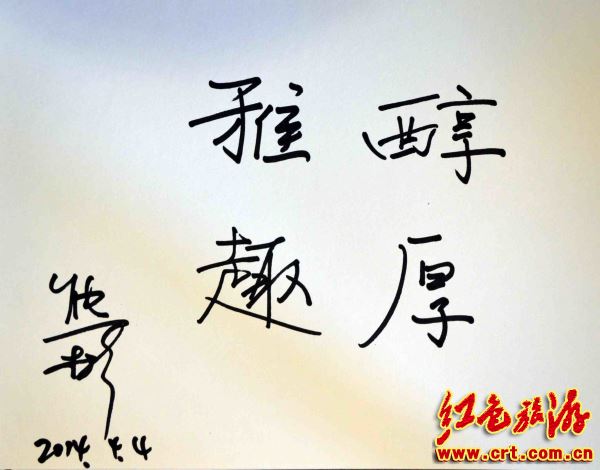 醇厚
雅趣
2014.4.4
红色旅游
www.crt.com.cn